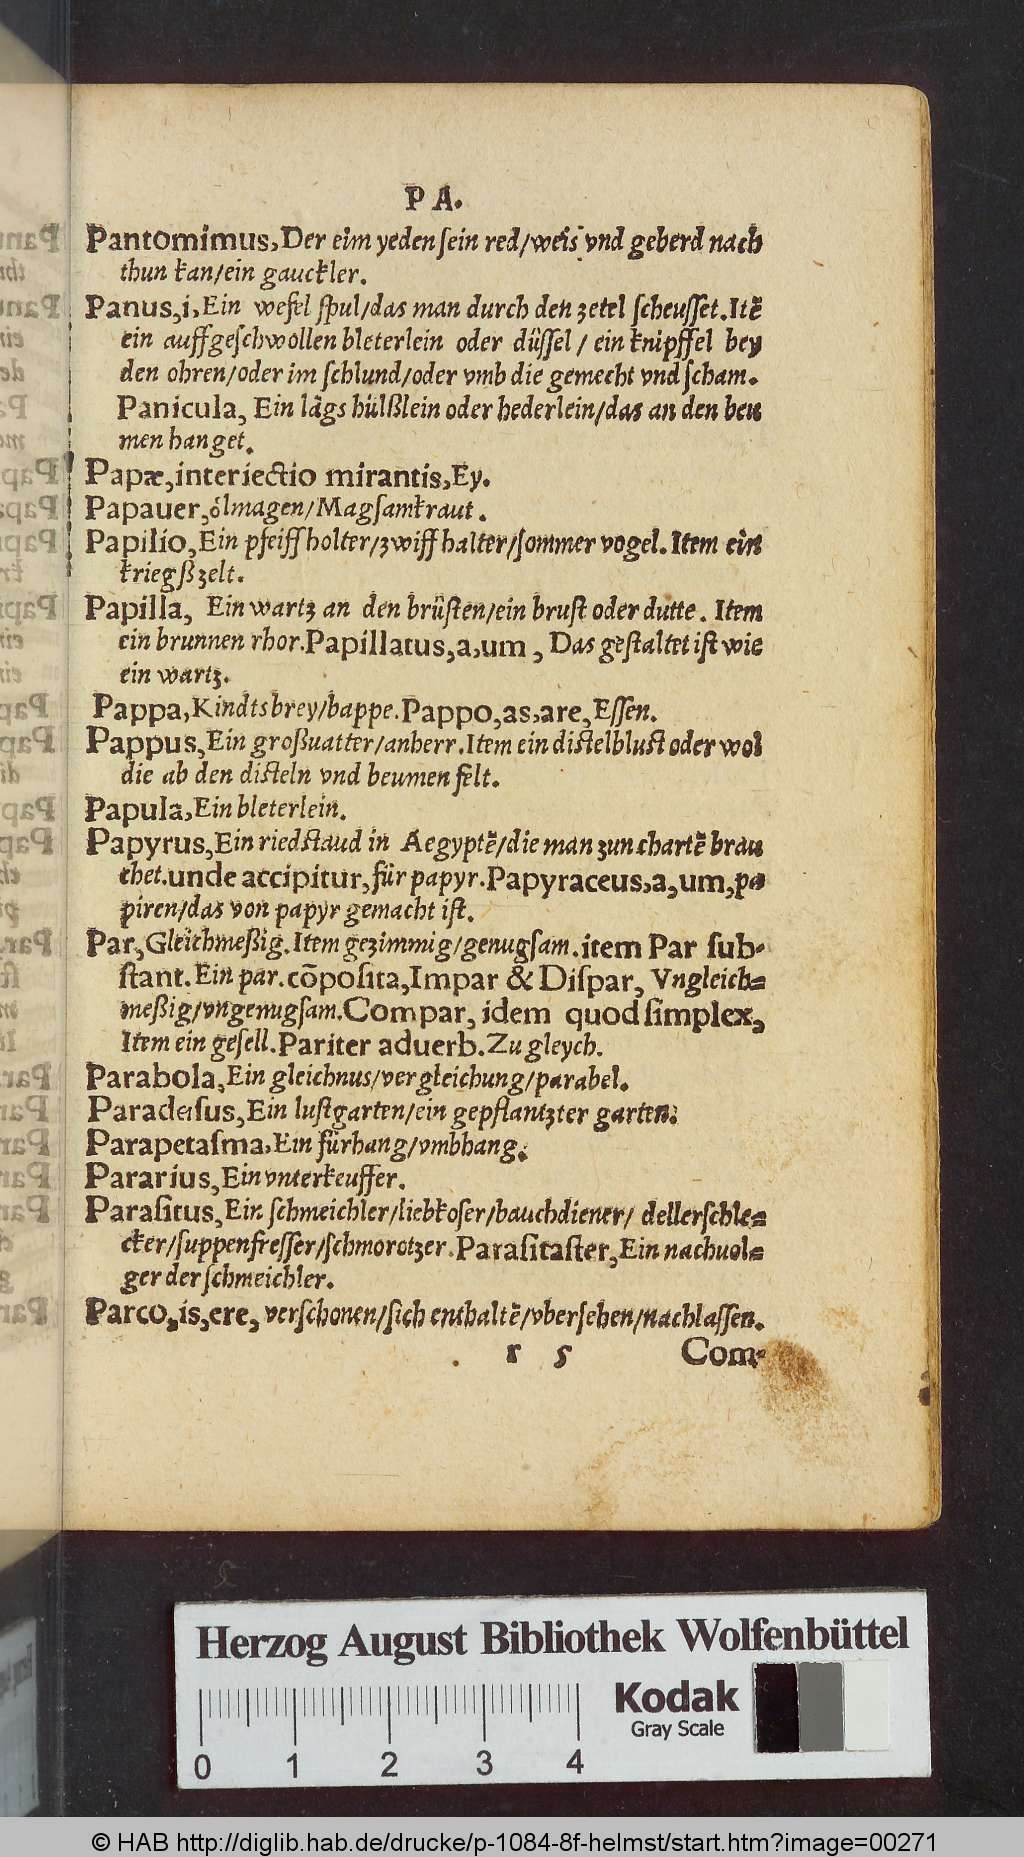 P A.
Pantomimus, Der eim yeden sein red/weis vnd geberd nach
thun kan/ein gauckler.
Panus, i, Ein wefel spul/das man durch den zetel scheusset. Itẽ
ein auffgeschwollen bleterlein oder düssel / ein knipffel bey
den ohren/oder im schlund/oder vmb die gemecht vnd scham.
Panicula, Ein lãgs hülßlein oder hederlein/das an den beu
men hanget.
Papæ, interiectio mirantis, Ey.
Papauer, ölmagen/Magsamkraut.
Papilio, Ein pfeiffholter/zwiffhalter/sommer vogel. Item ein
kriegßzelt.
Papilla, Ein wartz an den brüsten/ein brust oder dutte. Item
ein brunnen rhor. Papillatus, a, um, Das gestaltet ist wie
ein wartz.
Pappa, Kindtsbrey/bappe. Pappo, as, are, Essen.
Pappus, Ein großuatter/anherr. Item ein distelblust oder wol
die ab den disteln vnd beumen felt.
Papula, Ein bleterlein.
Papyrus, Ein riedstaud in Aegyptẽ/die man zun chartẽ brau
chet. unde accipitur, für papyr. Papyraceus, a, um, pa
piren/das von papyr gemacht ist.
Par, Gleichmeßig. Item gezimmig/genugsam. item Par sub-
stant. Ein par. cõposita, Impar & Dispar, Vngleich=
meßig/vngenugsam. Compar, idem quod simplex,
Item ein gesell. Pariter aduerb. Zu gleych.
Parabola, Ein gleichnus/vergleichung/parabel.
Paradeisus, Ein lustgarten/ein gepflantzter garten.
Parapetasma, Ein fürhang/vmbhang.
Pararius, Ein vnterkeuffer.
Parasitus, Ein schmeichler/liebkoser/bauchdiener/ dellerschle=
cker/suppenfresser/schmorotzer. Parasitaster, Ein nachuol=
ger der schmeichler.
Parco, is, ere, verschonen/sich enthaltẽ/vbersehen/nachlassen.
r 5 Com-
Herzog August Bibliothek Wolfenbüttel
Kodak
Gray Scale
0 1 2 3 4
© HAB http://diglib.hab.de/drucke/p-1084-8f-helmst/start.htm?image=00271